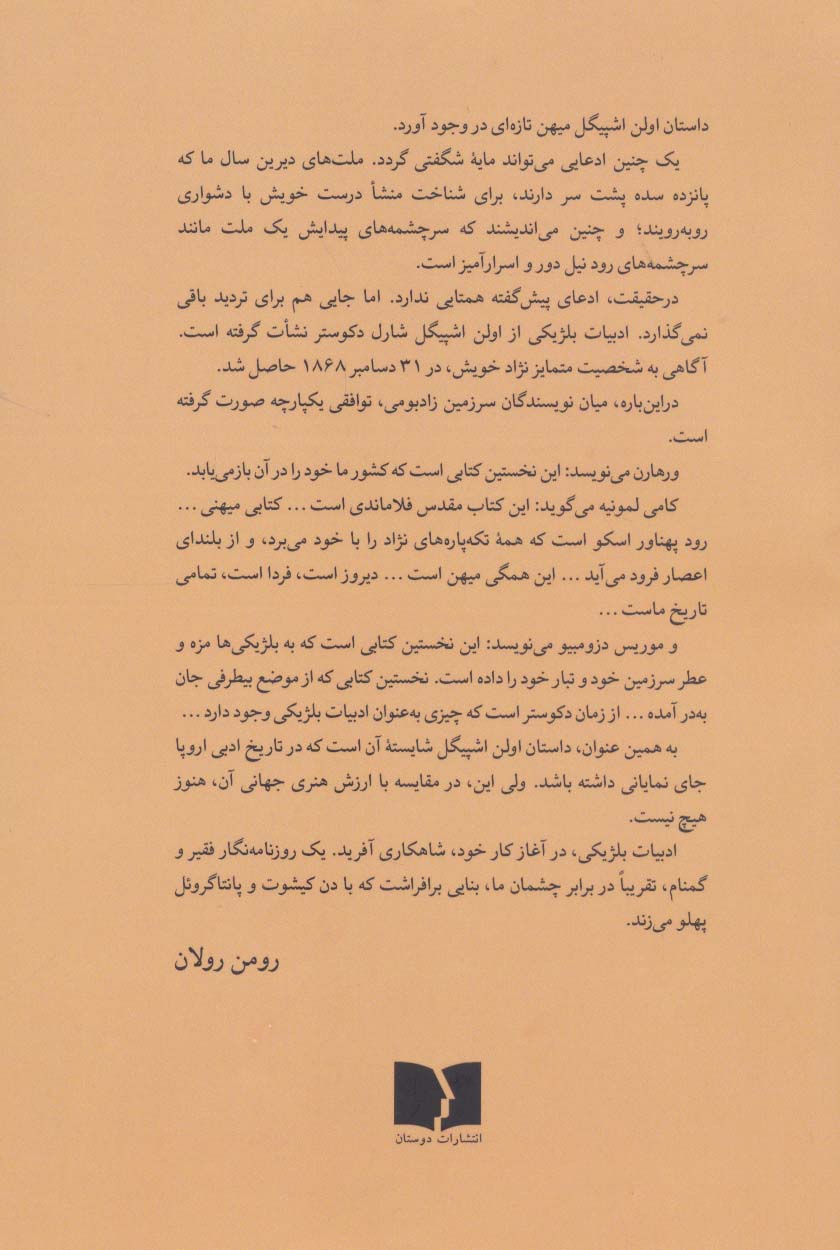 داستان اولن اشپیگل میهن تازه‌ای در وجود آورد.
یک چنین ادعایی می‌تواند مایهٔ شگفتی گردد. ملت‌های دیرین سال ما که
پانزده سده پشت سر دارند، برای شناخت منشأ درست خویش با دشواری
روبه‌رویند؛ و چنین می‌اندیشند که سرچشمه‌های پیدایش یک ملت مانند
سرچشمه‌های رود نیل دور و اسرارآمیز است.
درحقیقت، ادعای پیش‌گفته همتایی ندارد. اما جایی هم برای تردید باقی
نمی‌گذارد. ادبیات بلژیکی از اولن اشپیگل شارل دکوستر نشأت گرفته است.
آگاهی به شخصیت متمایز نژاد خویش، در ۳۱ دسامبر ۱۸۶۸ حاصل شد.
دراین‌باره، میان نویسندگان سرزمین زادبومی، توافقی یکپارچه صورت گرفته
است.
ورهارن می‌نویسد: این نخستین کتابی است که کشور ما خود را در آن بازمی‌یابد.
کامی لمونیه می‌گوید: این کتاب مقدس فلاماندی است ... کتابی میهنی ...
رود پهناور اسکو است که همهٔ تکه‌پاره‌های نژاد را با خود می‌برد، و از بلندای
اعصار فرود می‌آید ... این همگی میهن است ... دیروز است، فردا است، تمامی
تاریخ ماست ...
و موریس دزومبیو می‌نویسد: این نخستین کتابی است که به بلژیکی‌ها مزه و
عطر سرزمین خود و تبار خود را داده است. نخستین کتابی که از موضع بیطرفی جان
به‌در آمده ... از زمان دکوستر است که چیزی به‌عنوان ادبیات بلژیکی وجود دارد ...
به همین عنوان، داستان اولن اشپیگل شایستهٔ آن است که در تاریخ ادبی اروپا
جای نمایانی داشته باشد. ولی این، در مقایسه با ارزش هنری جهانی آن، هنوز
هیچ نیست.
ادبیات بلژیکی، در آغاز کار خود، شاهکاری آفرید. یک روزنامه‌نگار فقیر و
گمنام، تقریباً در برابر چشمان ما، بنایی برافراشت که با دن کیشوت و پانتاگروئل
پهلو می‌زند.
رومن رولان
انتشارات دوستان